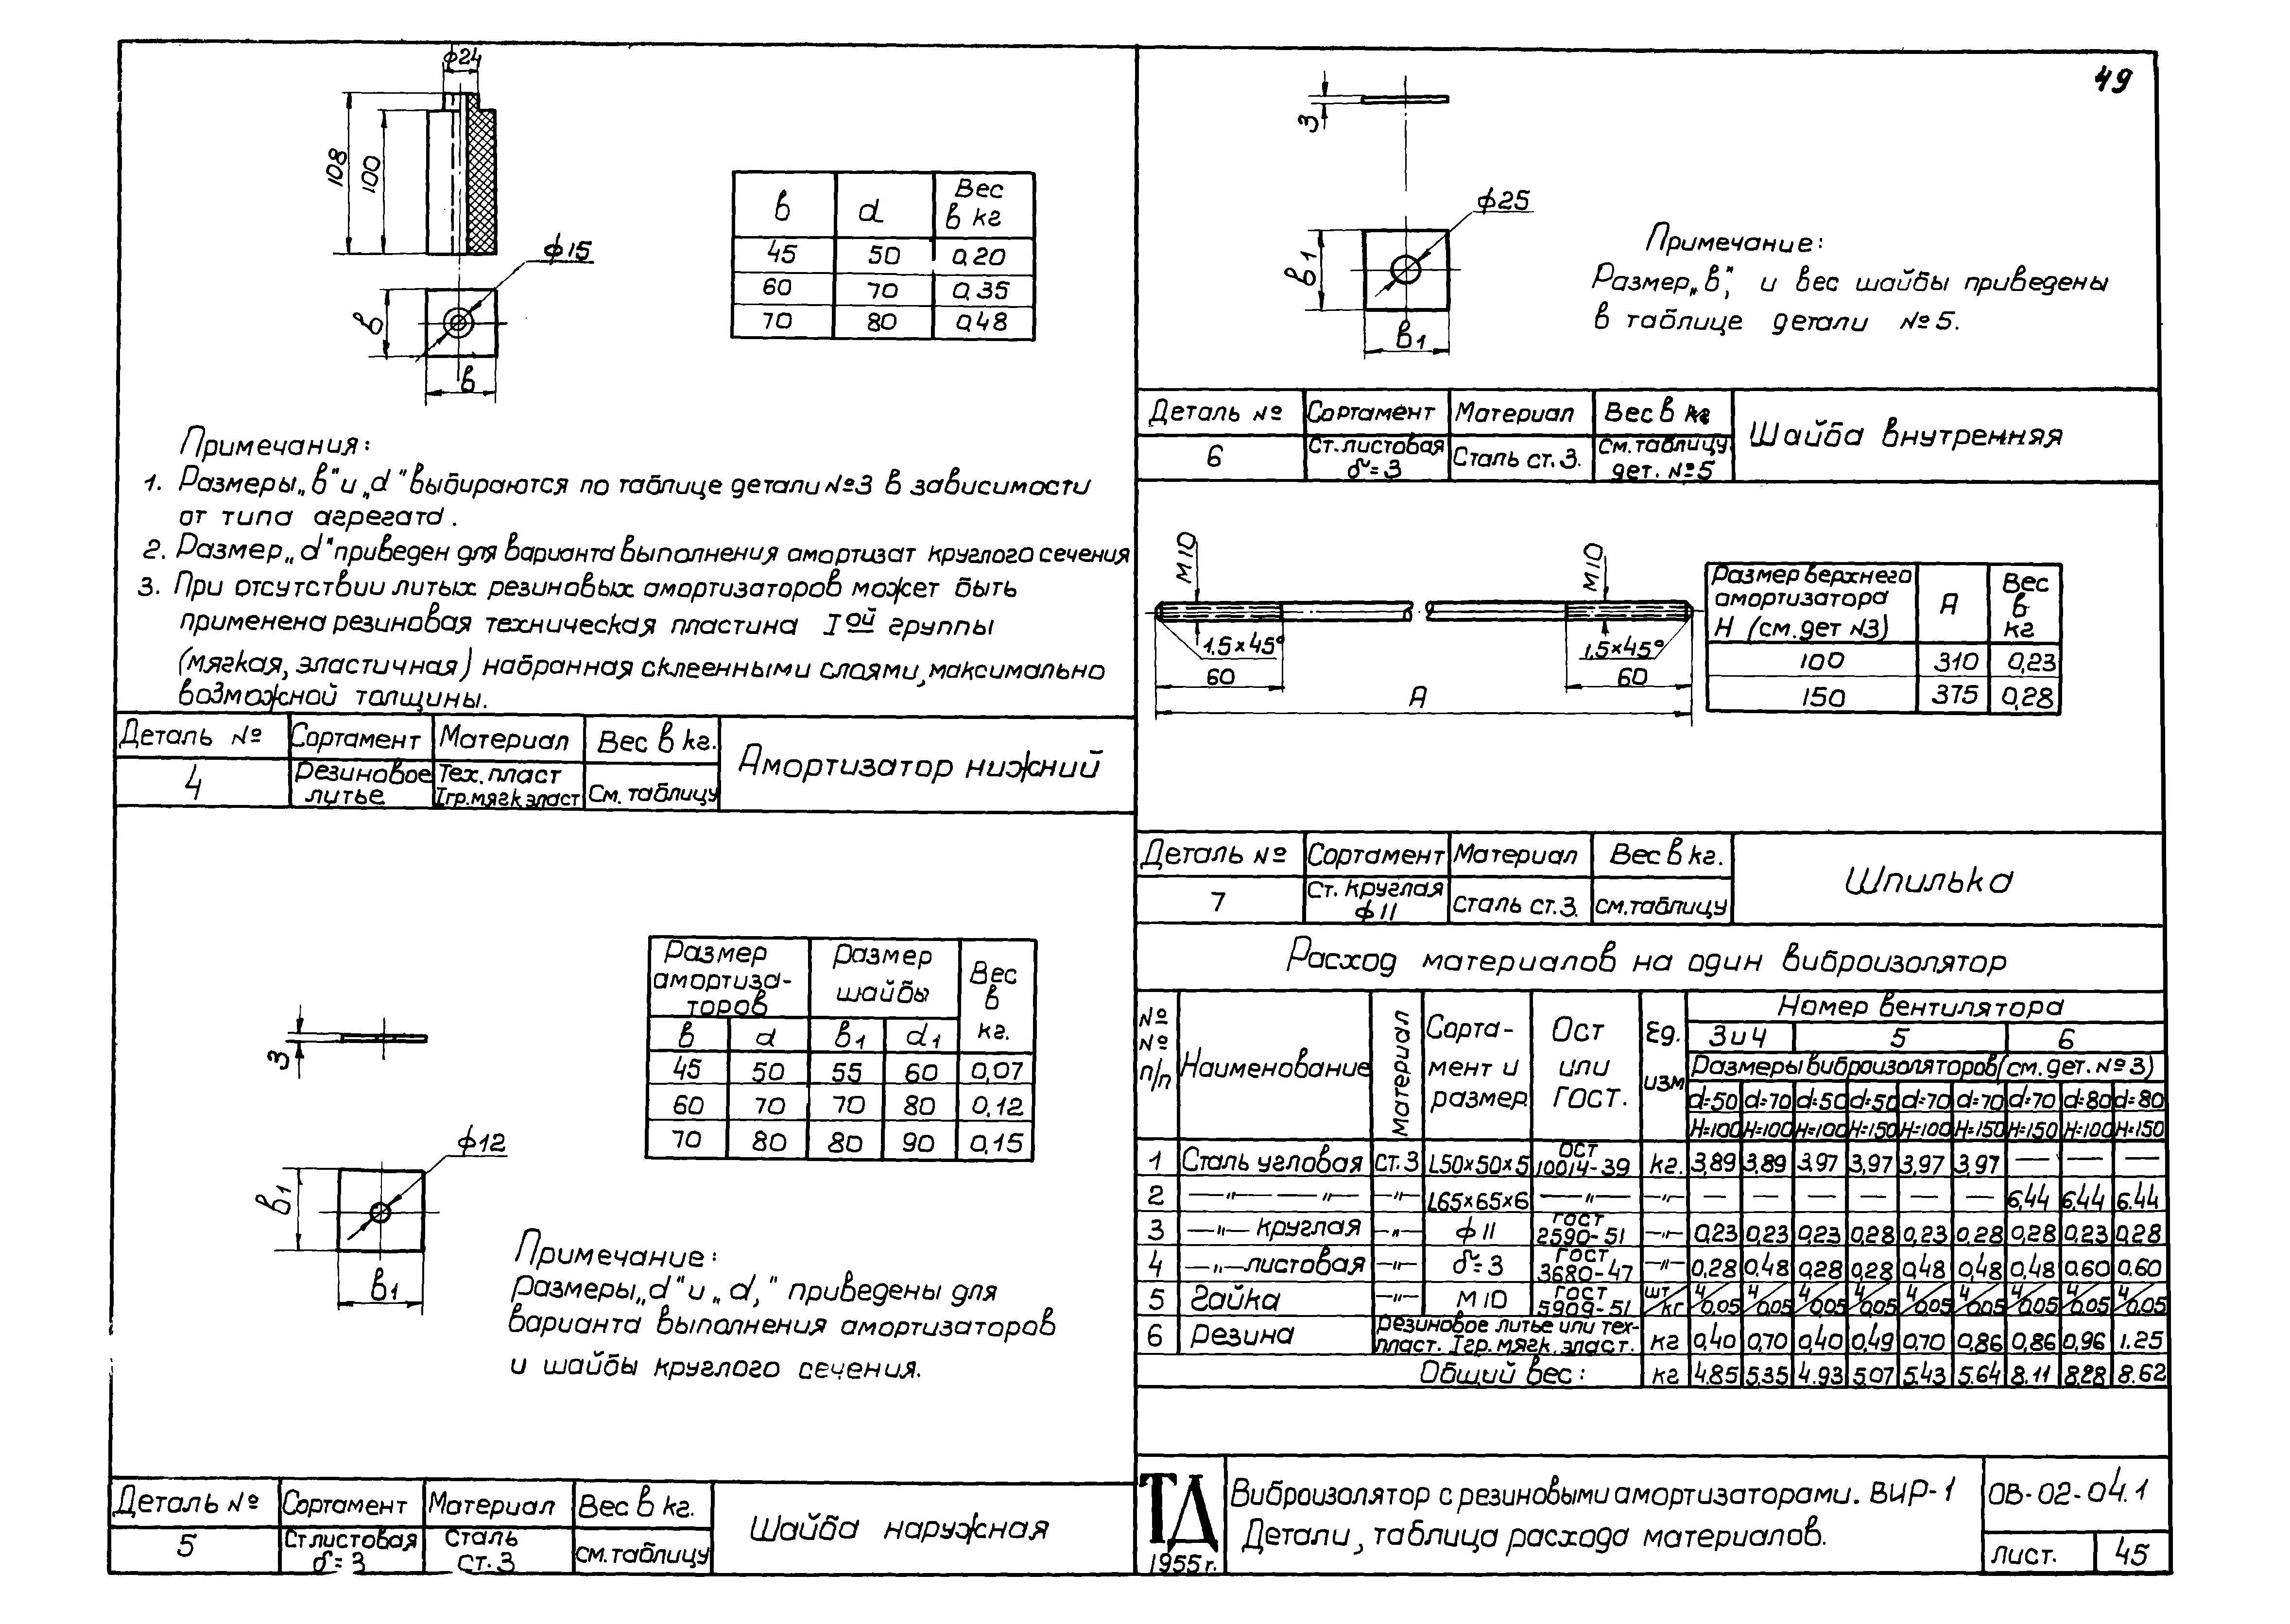 49
ф24
108
100
ф15
в
в
в d Вес в кг
45 50 0,20
60 70 0,35
70 80 0,48
Примечания:
1. Размеры „в" и „d" выбираются по таблице детали №3 в зависимости
от типа агрегата.
2. Размер „d" приведен для варианта выполнения амортизат круглого сечения
3. При отсутствии литых резиновых амортизаторов может быть
применена резиновая техническая пластина Iой группы
(мягкая, эластичная) набранная склеенными слоями, максимально
возможной толщины.
Деталь № Сортамент Материал Вес в кг.
4 Резиновое литье Тех. пласт Iгр. мягк эласт См. таблицу
Амортизатор нижний
3
ф12
в1
в1
Размер амортиза-торов Размер шайбы Вес в кг.
в d в1 d1
45 50 55 60 0,07
60 70 70 80 0,12
70 80 80 90 0,15
Примечание:
Размеры „d" и „d1" приведены для
варианта выполнения амортизаторов
и шайбы круглого сечения.
Деталь № Сортамент Материал Вес в кг.
5 Ст листовая δ=3 Сталь ст. 3 см. таблицу
Шайба наружная
3
ф25
в1
в1
Примечание:
Размер „в1" и вес шайбы приведены
в таблице детали №5.
Деталь № Сортамент Материал Вес в кг
6 Ст. листовая δ=3 Сталь ст. 3. См. таблицу дет. №5
Шайба внутренняя
М10
М10
1,5×45°
1,5×45°
60
60
А
Размер верхнего амортизатора Н (см. дет №3) А Вес в кг
100 310 0,23
150 375 0,28
Деталь № Сортамент Материал Вес в кг.
7 Ст. круглая ф11 Сталь ст. 3. см. таблицу
Шпилька
Расход материалов на один виброизолятор
№ № п/п Наименование Материал Сорта-мент и размер Ост или ГОСТ. Ед. изм Номер вентилятора
3 и 4 5 6
Размеры виброизоляторов (см. дет. №3)
d=50 d=70 d=50 d=50 d=70 d=70 d=70 d=80 d=80
Н=100 Н=100 Н=100 Н=150 Н=100 Н=150 Н=150 Н=100 Н=150
1 Сталь угловая Ст. 3 L50×50×5 ОСТ 10014-39 кг. 3,89 3,89 3,97 3,97 3,97 3,97 — — —
2 —"— —"— —"— L65×65×6 —"— —"— — — — — — — 6,44 6,44 6.44
3 —"— круглая —"— ф11 ГОСТ 2590-51 —"— 0,23 0,23 0,23 0,28 0,23 0,28 0,28 0,23 0,28
4 —"— листовая —"— δ=3 ГОСТ 3680-47 —"— 0,28 0,48 0,28 0,28 0,48 0,48 0,48 0,60 0,60
5 Гайка —"— М10 ГОСТ 5909-51 шт/кг 4/0,05 4/0,05 4/0,05 4/0,05 4/0,05 4/0,05 4/0,05 4/0,05 4/0,05
6 Резина резиновое литье или тех-пласт. Iгр. мягк. эласт. кг 0,40 0,70 0,40 0,49 0,70 0,86 0,86 0,96 1.25
Общий вес: кг 4.85 5.35 4.93 5.07 5.43 5.64 8.11 8.28 8.62
ТД
1955 г.
Виброизолятор с резиновыми амортизаторами. ВИР-1
Детали, таблица расхода материалов.
ОВ-02-04.1
лист. 45